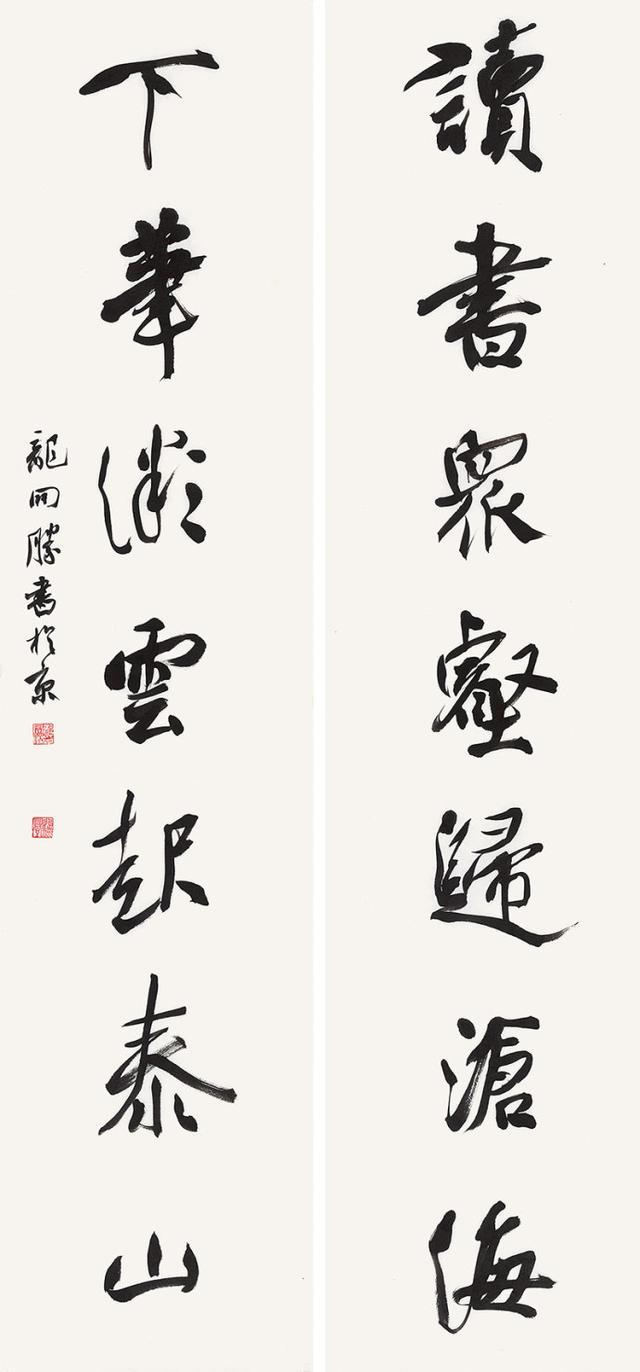 讀書眾壑歸滄海
下筆微雲起泰山
龍開勝書於京